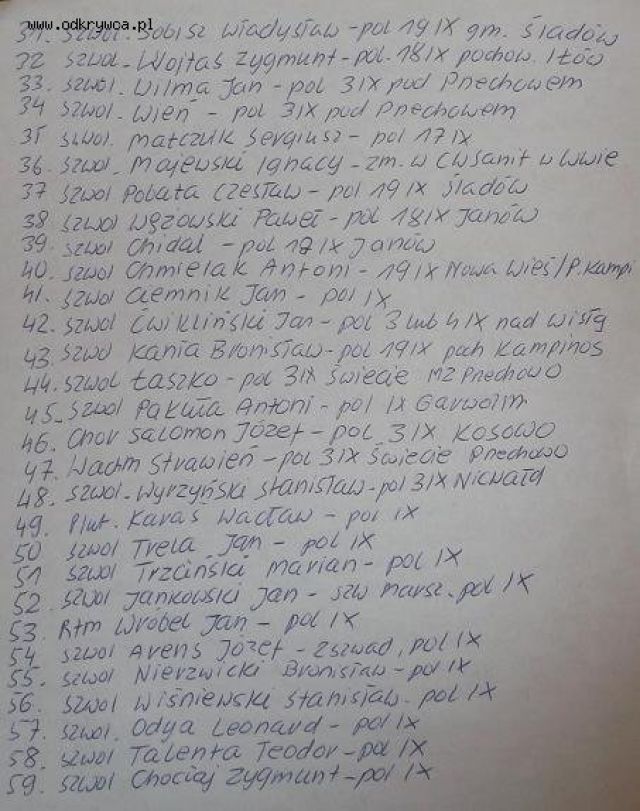 www.odkrywca.pl
31. Szwol. Sobisz Władysław - pol 19 IX gm. Śladów
32 szwol. Wojtaś Zygmunt - pol. 18 IX pochow. Iłów
33. szwol. Wilma Jan - pol 3 IX pod Pnechowem
34 szwol. Wień - pol 3IX pod Pnechowem
35 szwol. Matczuk Sergiusz - pol 17 IX
36. szwol. Majewski Ignacy - zm. w CWSanit w Lwwie
37 szwol Pobata Czesław - pol 19 IX Śladów
38 szwol Wężowski Paweł - pol 18 IX Janów
39. szwol Chidal - pol IX Janów
40. szwol Chmielak Antoni - 19 IX Nowa Wieś/P. Kampi
41. szwol Ciemnik Jan - pol IX
42. szwol Ćwikliński Jan - pol 3 lub 4 IX nad Wisłą
43 szwol Kania Bronisław - pol 19 IX poch Kampinos
44. szwol Łaszko - pol 3IX Świecie MZ Pnechowo
45. szwol Pakuła Antoni - pol IX Garwolin
46. Chor Salomon Józef - pol 3 IX Kosowo
47. Wachm Strawień - pol 3 IX Świecie Pnechowo
48. szwol. Wyrzyński Stanisław - pol 3IX Nicwałd
49. Plut. Karaś Wacław - pol IX
50 szwol Trela Jan - pol IX
51 szwol Trzciński Marian - pol IX
52. szwol Jankowski Jan - szw marsz. pol IX
53. Rtm Wróbel Jan - pol IX
54 szwol Arens Józef - 2 szwad, pol IX
55. szwol Nierzwicki Bronisław - pol IX
56. szwol Wiśniewski Stanisław. pol IX
57. szwol. Odya Leonard - pol IX
58. szwol Talenta Teodor - pol IX
59. szwol Chociaj Zygmunt - pol IX